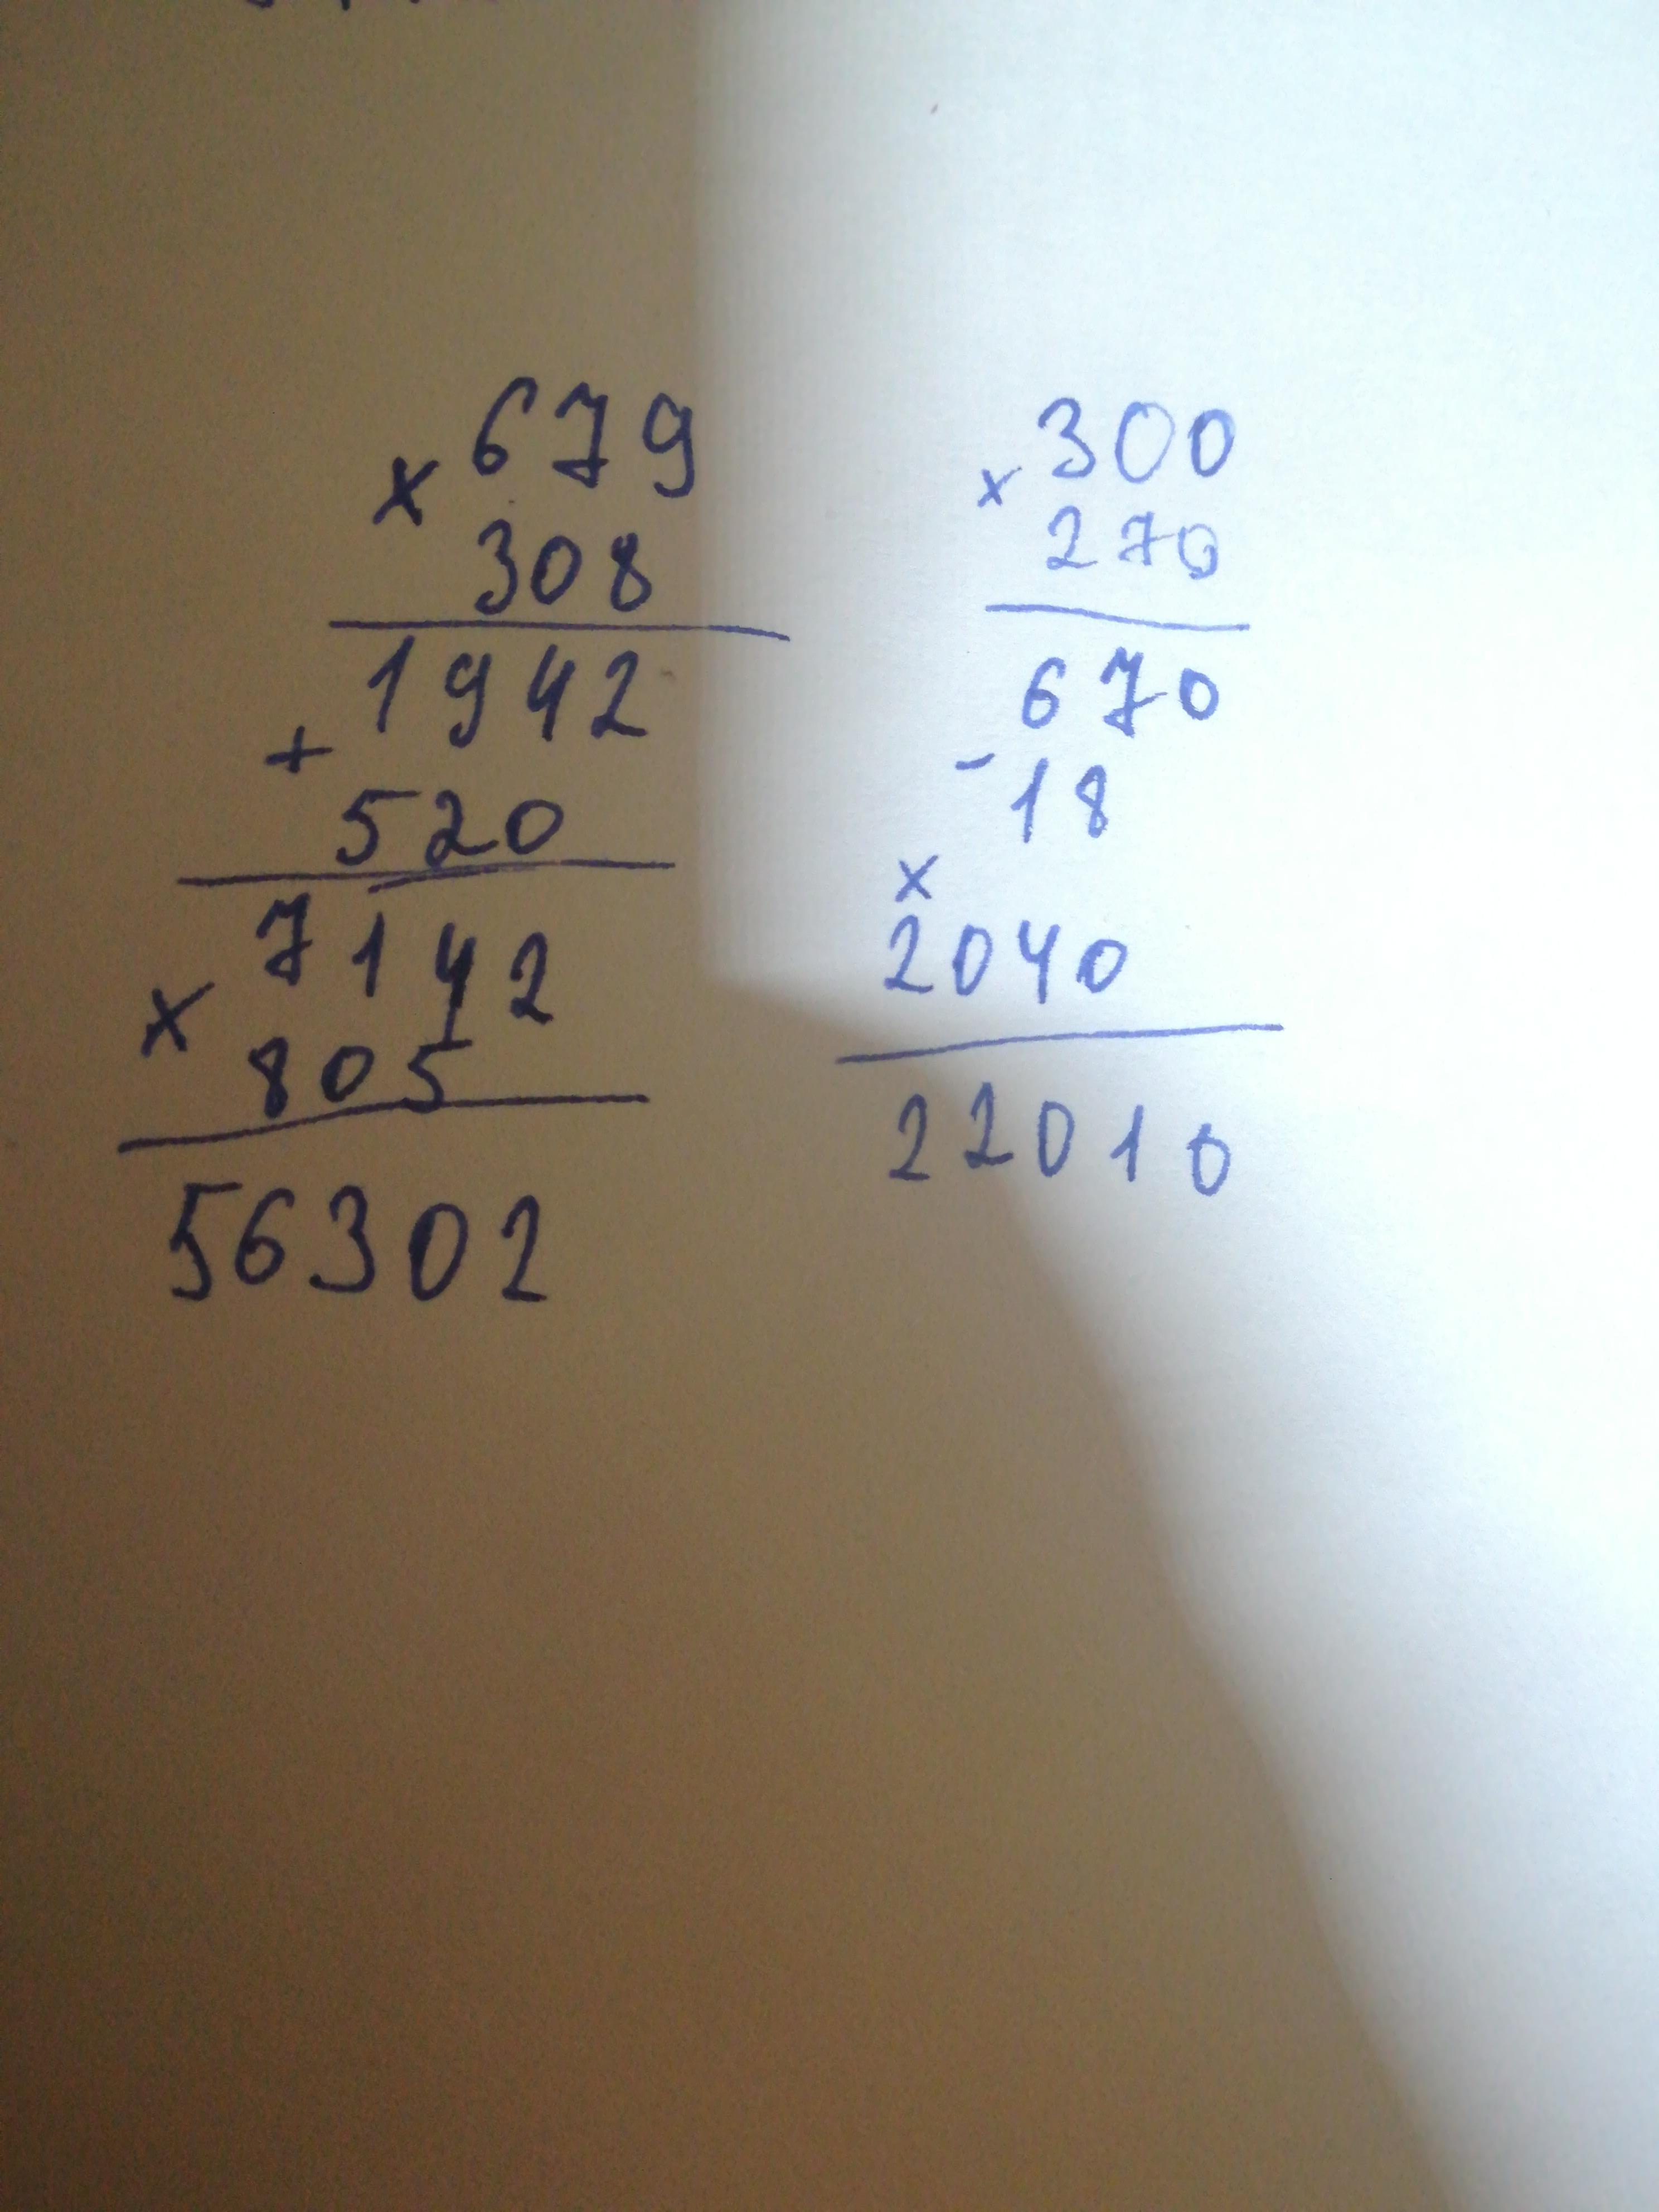 × 679
308
1942
+
520
7142
× 805
56302
300
× 270
670
- 18
×
2040
22010